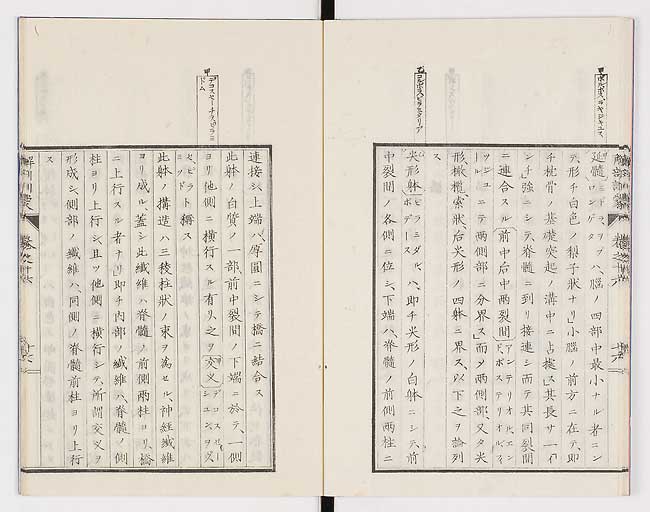 解剖訓蒙
巻之十六
延髓ハ、腦ノ四部中最小ナル者ニシ
テ、形チ白色ノ梨子狀ナリ」小腦ノ前方ニ在テ、即
チ枕骨ノ基礎突起ノ溝中ニ占據ス」其長サ一「イ
ンチ」強ニシテ脊髓ニ到リ接連シ而テ其同裂間
ニ連合スル前中后中兩裂間
ニテ兩側部ニ分界ス」而メ兩側部、又夕尖
形、橄欖、索狀、后尖形ノ四躰ニ界ス、以下之ヲ論列
ス
尖形躰ハ、即チ尖形ノ白躰ニシテ、前
中裂間ノ各側ニ位シ、下端ハ、脊髓ノ前側兩柱ニ
連接シ、上端ハ、厚圓ニシテ橋ニ結合ス
此躰ノ白質ノ一部、前中裂間ノ下端ニ於テ、一側
ヨリ他側ニ横行スル有リ、之ヲ交叉
ト稱ス
此躰ノ構造ハ三稜柱狀ノ束ヲ爲セル、神經纎維
ヨリ成ル、蓋シ此纎維ハ脊髓ノ前側兩柱ヨリ、橋
ニ上行スル者ナリ」即チ内部ノ纎維ハ、脊髓ノ側
柱ヨリ上行シ、且ツ他側ニ横行シテ、所謂交叉ヲ
形成シ、側部ノ纎維ハ、同側ノ脊髓前柱ヨリ上行
解剖訓蒙
巻之十六